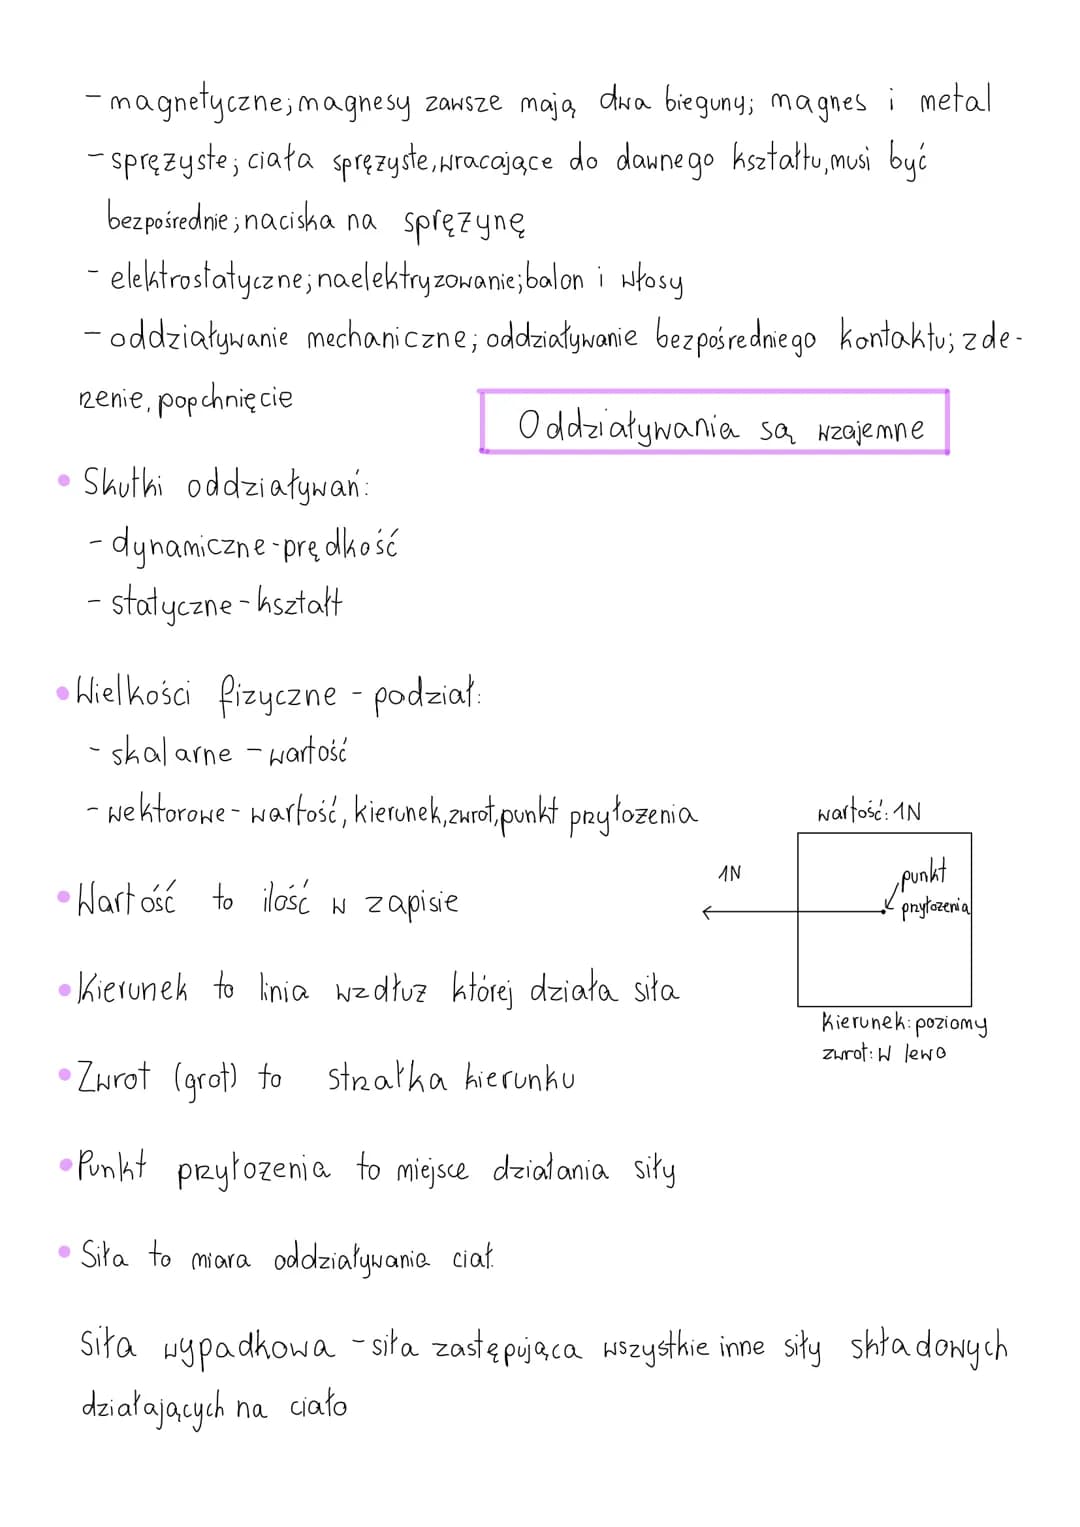 - magnetyczne; magnesy zawsze mają dwa bieguny; magnes i metal
- sprężyste; ciała sprężyste, wracające do dawnego kształtu, musi być
bezpośrednie; naciska na sprężynę
- elektrostatyczne; naelektryzowanie; balon i włosy
- oddziaływanie mechaniczne; oddziaływanie bezpośredniego kontaktu; zde-
rzenie, popchnięcie
Oddziaływania są wzajemne
• Skutki oddziaływań:
- dynamiczne - prędkość
- statyczne - kształt
• Wielkości fizyczne - podział:
- skalarne - wartość
- wektorowe - wartość, kierunek, zwrot, punkt przyłożenia
wartość: 1N
1N
punkt
przyłożenia
Kierunek: poziomy
zwrot: W lewo
• Wartość to ilość w zapisie
• Kierunek to linia wzdłuż której działa siła
• Zwrot (grot) to strzałka kierunku
• Punkt przyłożenia to miejsce działania siły
• Siła to miara oddziaływania ciał.
Siła wypadkowa - siła zastępująca wszystkie inne siły składowych
działających na ciało